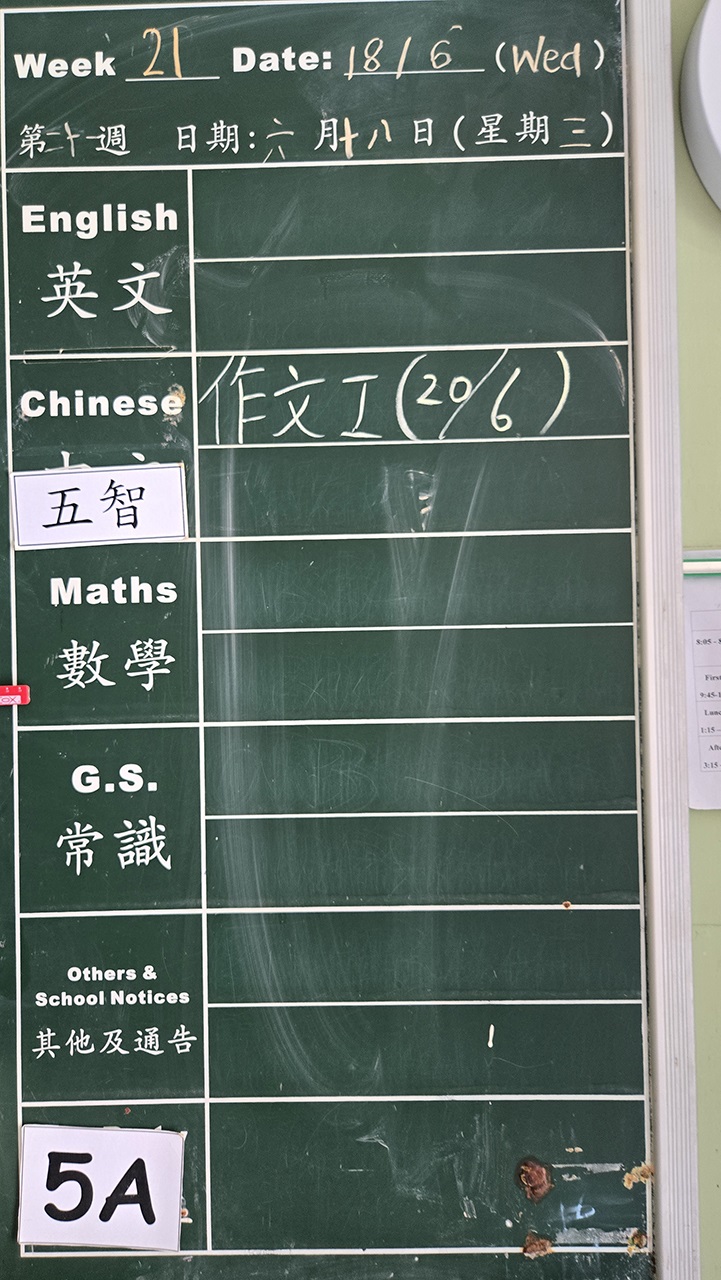 Week 21 Date: 18/6 (Wed)
第二十一週 日期:六月十八日(星期三)
English
英文
Chinese
作文工(20/6)
五智
Maths
數學
G.S.
常識
Others &
School Notices
其他及通告
5A
8:05 -
First
9:45-1
1:15 -
3:15